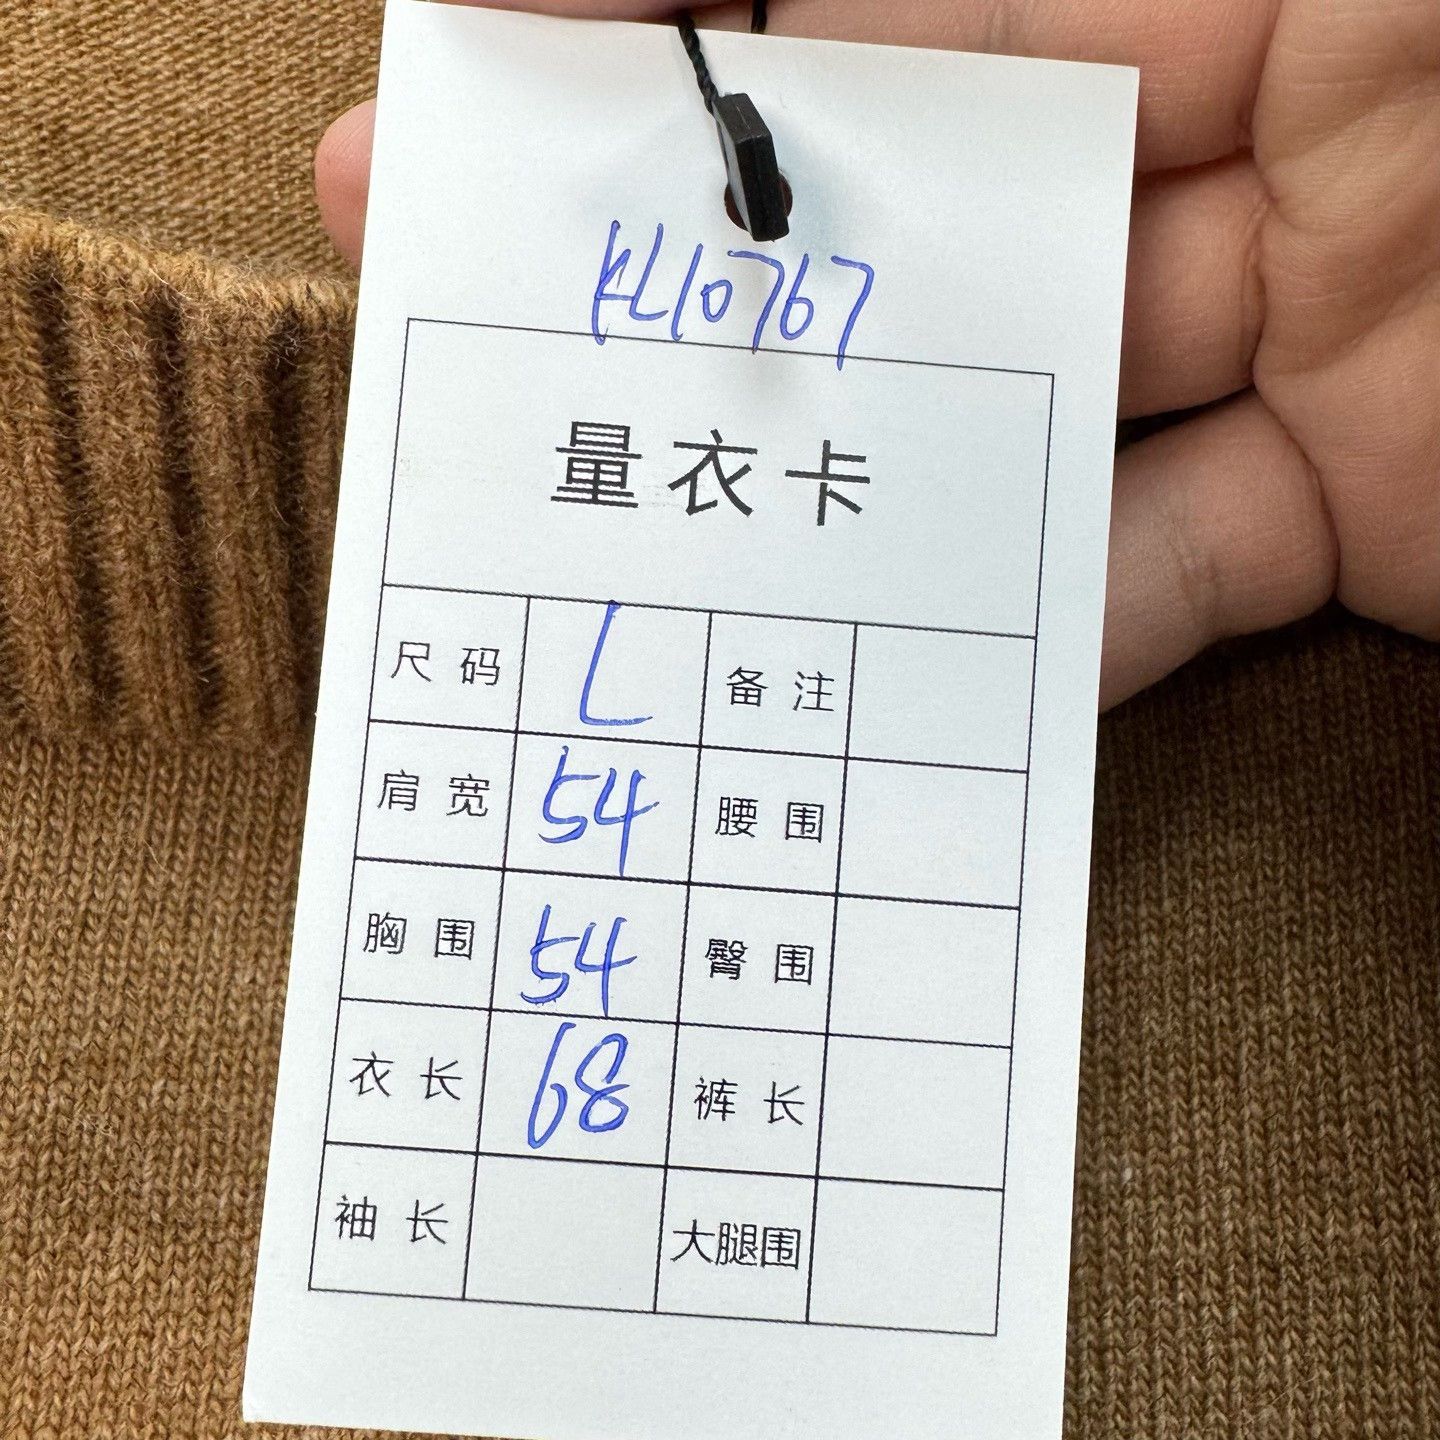 KL10767
量衣卡
尺码 L 备注
肩宽 54 腰围
胸围 54 臀围
衣长 68 裤长
袖长 大腿围